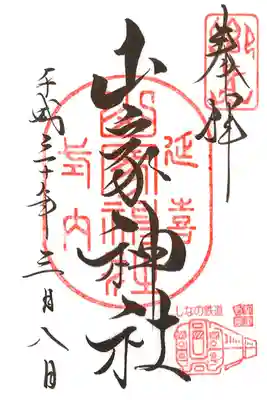 奉拝
延喜
山家神社
式内
平成三十年三月八日
しなの鉄道